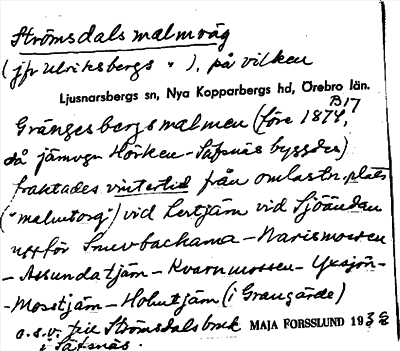 Strömsdalsmalmväg
(jfr Ulriksbergs " ), på vilken
Ljusnarsbergs sn, Nya Kopparbergs hd, Örebro län.
B17
Grängesbergsmalmen (före 1874,
då järnvägen Hörken-Säfsnäs byggdes)
fraktades vintertid från omlastn.plats
("malmtorg") vid Lertjärn vid Sjöändan
uppför backarna - Narismossen
- Assundatjärn - Kvarnmossen - Yxsjön-
- Mosstjärn - Holmtjärn (i Grangärde)
o.s.v. till Strömsdalsbruk MAJA FORSSLUND 193
i Säfsnäs.